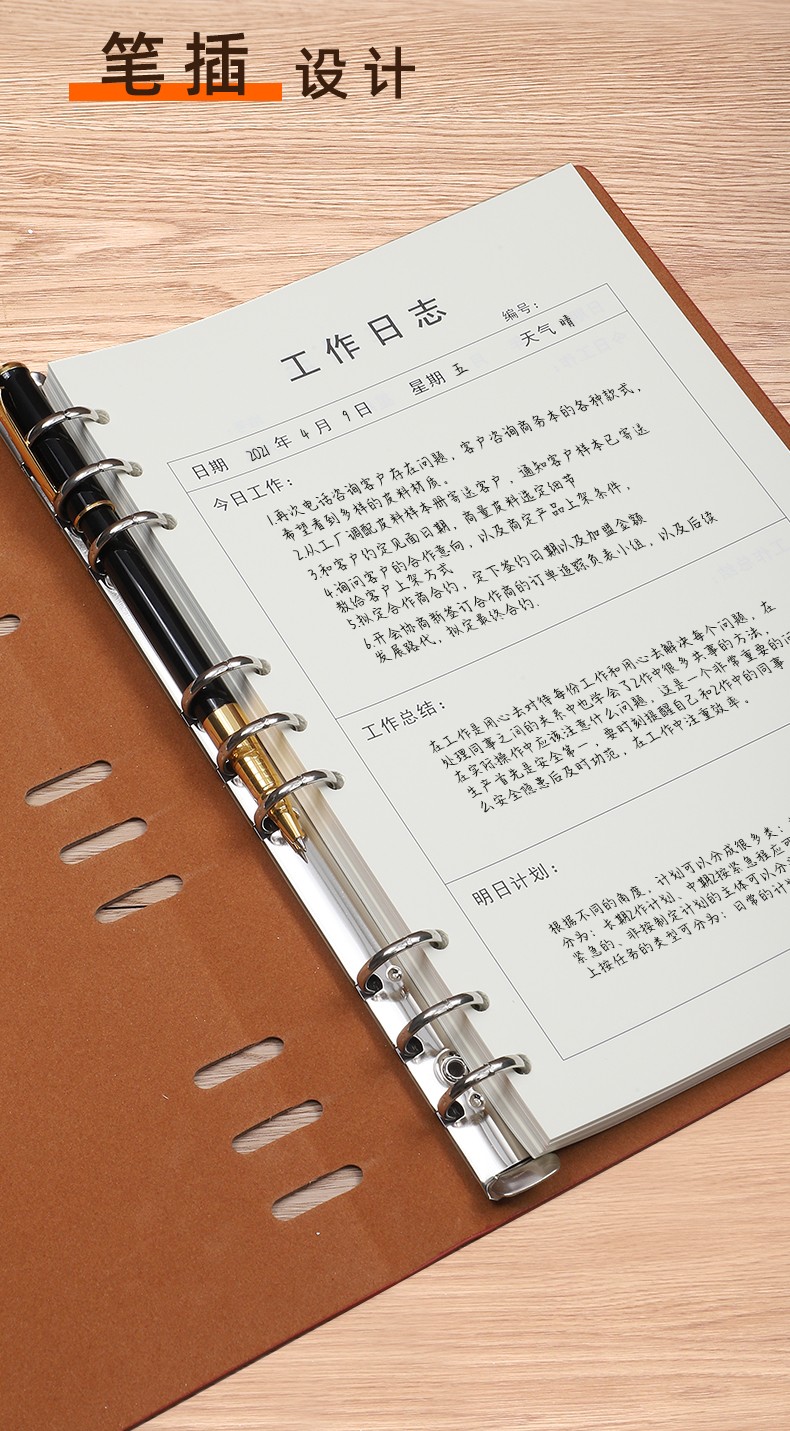 笔插 设计
工作日志
编号：
日期 2021年 4月 9日 星期 五 天气 晴
今日工作：
1.再次电话咨询客户存在问题，客户咨询商务本的各种款式，
希望看到多样的皮料材质。
2.从工厂调配皮料样本册寄送客户，通知客户样本已寄送
3.和客户约定见面日期，商量皮料选定细节
4.询问客户的合作意向，以及商定产品上架条件，
教给客户上架方式
5.拟定合作商合约，定下签约日期以及加盟金额
6.开会协商新签订合作商的订单追踪负表小组，以及后续
发展路代，拟定最终合约.
工作总结：
在工作是用心去对待每份工作和用心去解决每个问题，在
处理同事之间的关系中也学会了工作中很多共事的方法，
在实际操作中应该注意什么问题，这是一个非常重要的问
生产首先是安全第一，要时刻提醒自己和工作中的同事
么安全隐患后及时功范，在工作中注重效率。
明日计划：
根据不同的角度，计划可以分成很多类：
分为：长期工作计划、中期工按紧急程应可
紧急的、非按制定计划的主体可以分
上按任务的类型可分为：日常的计